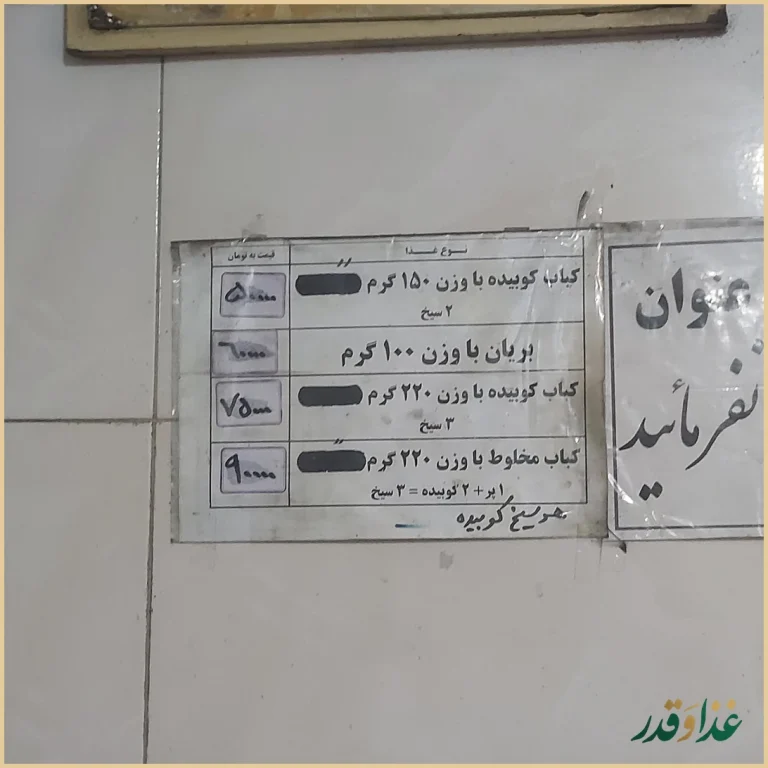 نوع غذا قیمت به تومان
کباب کوبیده با وزن ۱۵۰ گرم ۵۰۰۰۰
۲ سیخ
بریان با وزن ۱۰۰ گرم ۶۰۰۰۰
کباب کوبیده با وزن ۲۲۰ گرم ۷۵۰۰۰
۳ سیخ
کباب مخلوط با وزن ۲۲۰ گرم ۹۰۰۰۰
۱ پر + ۲ کوبیده = ۳ سیخ
هر سیخ کوبیده
عنوان
نفرمائید
غذا و قدر